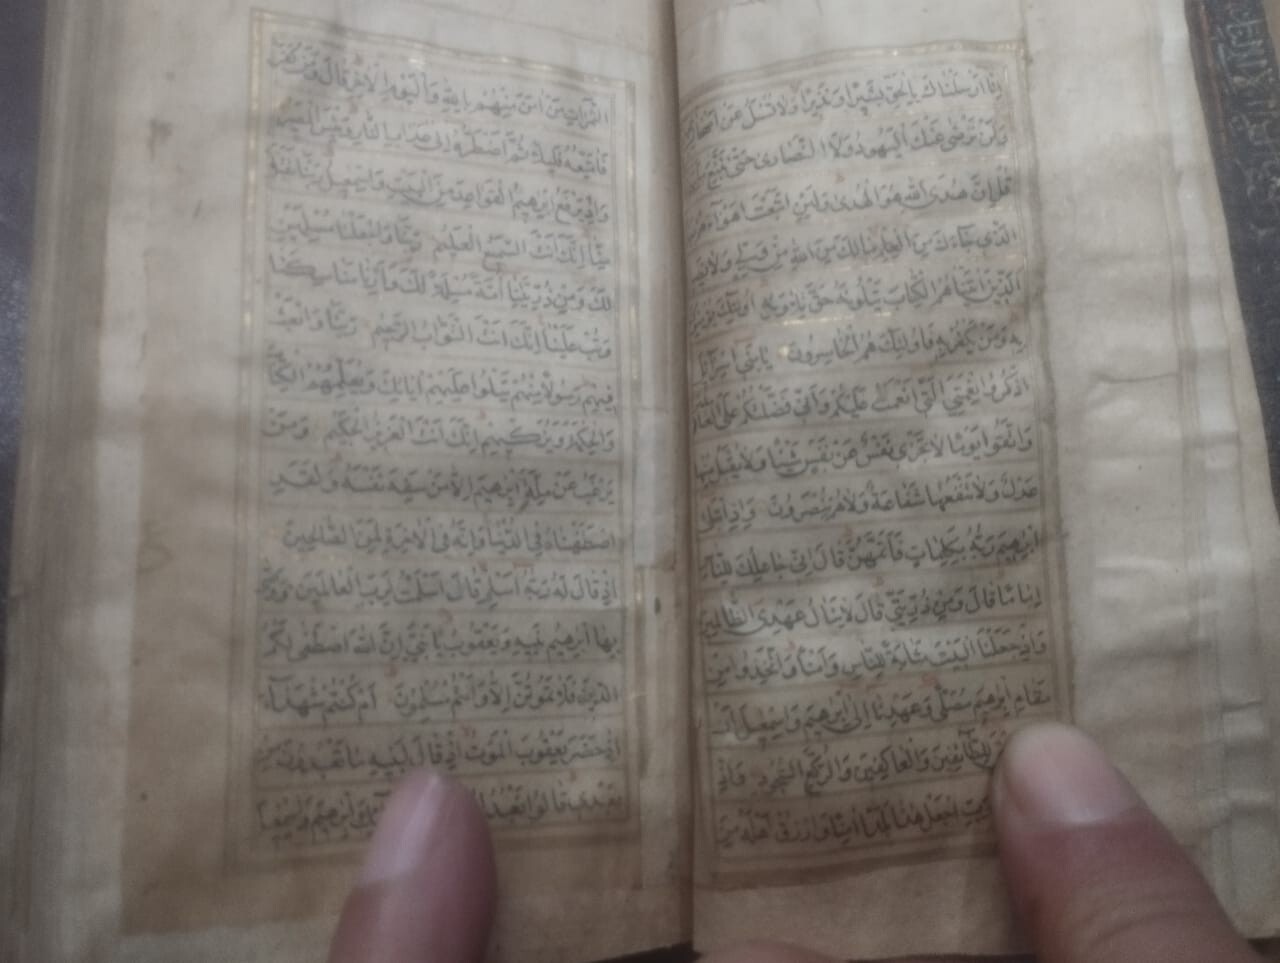 انا ارسلناك بالحق بشيرا ونذيرا ولا تسئل عن اصحاب
ولن ترضى عنك اليهود ولا النصارى حتى تتبع
قل ان هدى الله هو الهدى ولئن اتبعت اهواءهم
الذى جاءك من العلم مالك من الله من ولى ولا
الذين اتيناهم الكتاب يتلونه حق تلاوته اولئك يؤمنون
به ومن يكفر به فاولئك هم الخاسرون يا بنى اسرائيل
اذكروا نعمتى التى انعمت عليكم وانى فضلتكم على
واتقوا يوما لا تجزى نفس عن نفس شيئا ولا يقبل منها
عدل ولا تنفعها شفاعة ولا هم ينصرون واذ ابتلى
ابرهيم ربه بكلمات فاتمهن قال انى جاعلك للناس
اماما قال ومن ذريتى قال لا ينال عهدى الظالمين
واذ جعلنا البيت مثابة للناس وامنا واتخذوا من
مقام ابرهيم مصلى وعهدنا الى ابرهيم واسمعيل ان
للطائفين والعاكفين والركع السجود واذ
رب اجعل هذا بلدا امنا وارزق اهله من
الثمرات من امن منهم بالله واليوم الاخر قال ومن كفر
فامتعه قليلا ثم اضطره الى عذاب النار وبئس المصير
واذ يرفع ابرهيم القواعد من البيت واسمعيل ربنا تقبل
منا انك انت السميع العليم ربنا واجعلنا مسلمين
لك ومن ذريتنا امة مسلمة لك وارنا مناسكنا
وتب علينا انك انت التواب الرحيم ربنا وابعث
فيهم رسولا منهم يتلوا عليهم اياتك ويعلمهم الكتاب
والحكمة ويزكيهم انك انت العزيز الحكيم ومن
يرغب عن ملة ابرهيم الا من سفه نفسه ولقد
اصطفيناه فى الدنيا وانه فى الاخرة لمن الصالحين
اذ قال له ربه اسلم قال اسلمت لرب العالمين ووصى
بها ابرهيم بنيه ويعقوب يا بنى ان الله اصطفى لكم
الدين فلا تموتن الا وانتم مسلمون ام كنتم شهداء
اذ حضر يعقوب الموت اذ قال لبنيه ما تعبدون من
بعدى قالوا نعبد ابرهيم واسمعيل